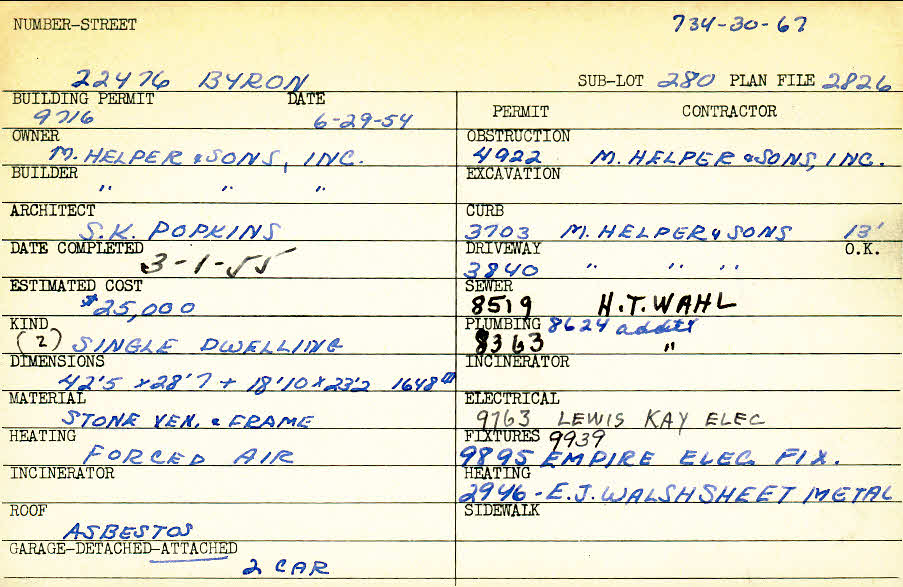 NUMBER-STREET 734-30-67
22476 BYRON SUB-LOT 280 PLAN FILE 2826
BUILDING PERMIT DATE
9716 6-29-54
OWNER
M. HELPER & SONS, INC.
BUILDER
" " "
ARCHITECT
S.K. POPKINS
DATE COMPLETED
3-1-55
ESTIMATED COST
$25,000
KIND
(2) SINGLE DWELLING
DIMENSIONS
42'5 x 28'7 + 18'10 x 23'2 1648
MATERIAL
STONE VEN. & FRAME
HEATING
FORCED AIR
INCINERATOR
ROOF
ASBESTOS
GARAGE-DETACHED-ATTACHED
2 CAR
PERMIT CONTRACTOR
OBSTRUCTION
4922 M. HELPER & SONS, INC.
EXCAVATION
CURB
3703 M. HELPER & SONS 13'
DRIVEWAY O.K.
3840 " " "
SEWER
8519 H.T. WAHL
PLUMBING 8624
8363 "
INCINERATOR
ELECTRICAL
9763 LEWIS KAY ELEC
FIXTURES 9939
9895 EMPIRE ELEC. FIX.
HEATING
2946 - E.J. WALSH SHEET METAL
SIDEWALK